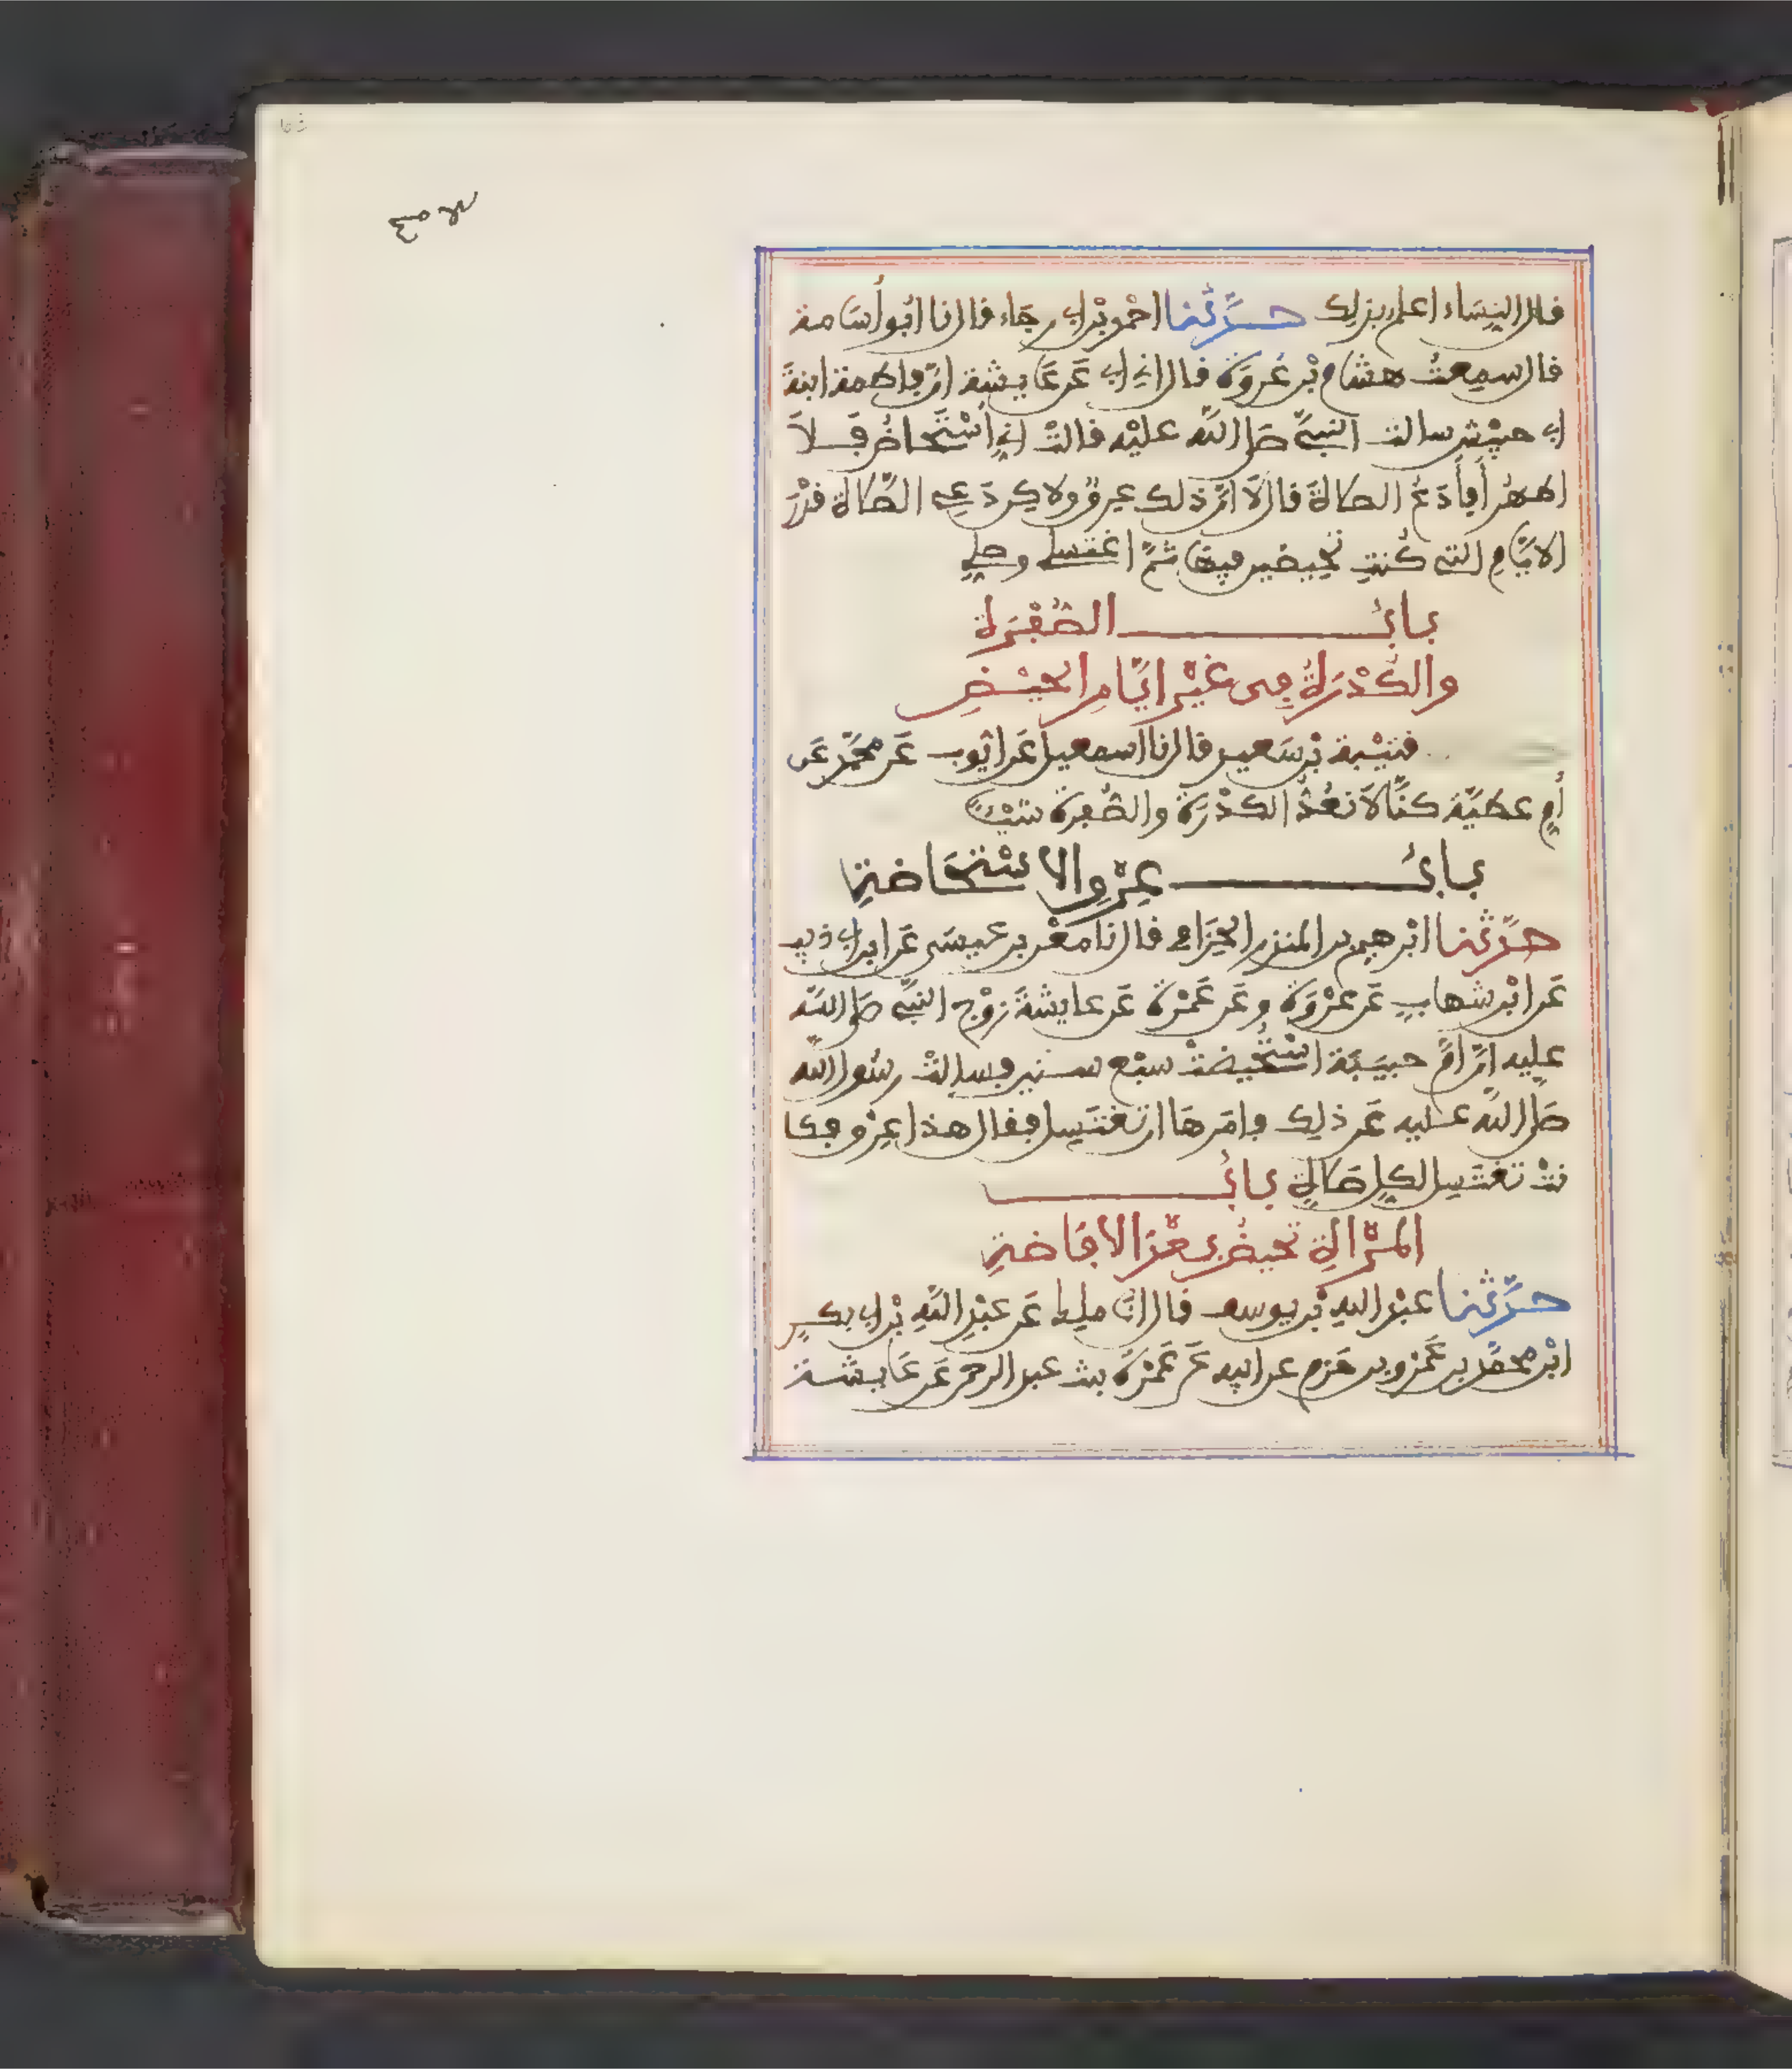 قال النِّسَاء اعلم بذلك حدَّثنا احْمد بْن ابي رجَاء قال نا ابُو أُسَامة
قال سمِعتُ هشام بْن عُروَة قال اخبرني ابي عَن عَايشة انّ فاطمة ابنةَ
ابي حبيْش سالت النبيَّ صَلى اللَّه عليْه قالتْ اني أُسْتَحَاضُ فَلاَ
اطهُر أَفأَدَعُ الصلاةَ قال لاَ انّ ذلك عِرقٌ ولاكن دَعي الصَّلاة قدْرَ
الايَّامِ التي كُنتِ تحِيضين فيهَا ثمَّ اغْتسلي وصلِّي
بابُ الصُّفْرَة
والكُدْرَةُ فِى غيْر ايَّامِ الحيْضِ
قتيْبة بْن سَعيد قال نا اسمعيل عَن ايُّوب عَن محمَّد عَن
أُمِ عطيَّة كنَّا لاَ نَعُدُّ الكُدْرَة والصُّفرة شيْئًا
بابُ عِرْقِ الاسْتحَاضةِ
حدَّثنا ابْرهيم بن المنذر الحِزَامي قال نا معْن بن عيسَى عَن ابن ابي ذيب
عَن ابْن شهابٍ عَن عُرْوَة وعَن عَمْرة عَن عايشةَ زوْج النبيّ صَلى اللَّه
عليه انّ امَّ حبيبَة اسْتُحِيضتْ سبْع سنين فسالتْ رسُول الله
صَلى اللَّه عليه عَن ذلك فامَرهَا ان تغتَسِل فقال هذا عِرْق فكا
نتْ تغتَسِل لكلِ صَلاةٍ بابُ
المرْاةِ تحيضُ بعْدَ الافَاضةِ
حدَّثنا عبْد اللهِ بْن يوسف قال انا ملك عَن عبْدِ اللَّهِ بْن ابي بكرٍ
ابْن محمَّد بن عَمْرو بن حَزم عن ابيه عَن عَمْرَة بنت عبد الرحمن عَن عَايشة